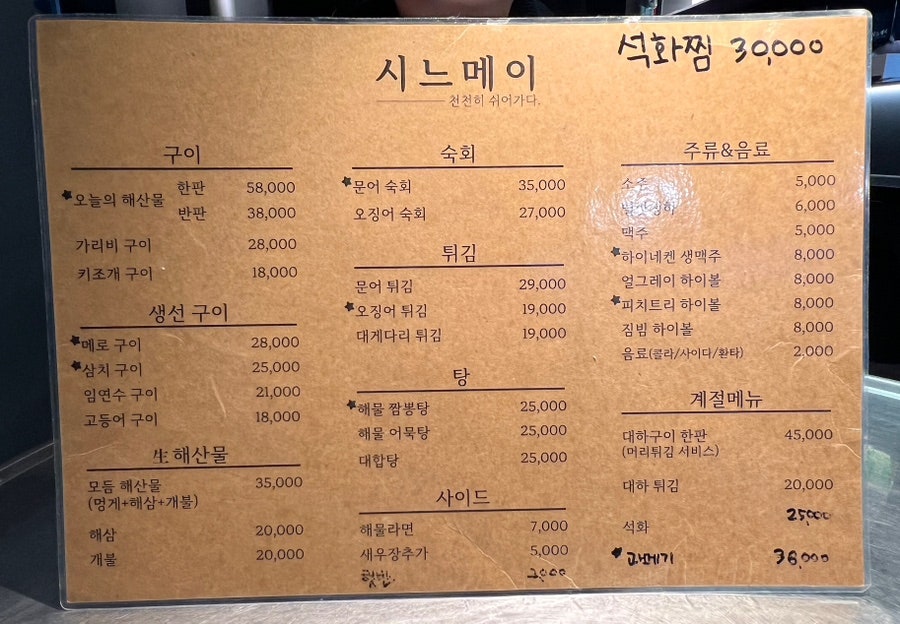 석화찜 30,000
시느메이
천천히 쉬어가다.
구이
★오늘의 해산물 한판 58,000
반판 38,000
가리비 구이 28,000
키조개 구이 18,000
생선 구이
★메로 구이 28,000
★삼치 구이 25,000
임연수 구이 21,000
고등어 구이 18,000
生 해산물
모듬 해산물 35,000
(멍게+해삼+개불)
해삼 20,000
개불 20,000
숙회
★문어 숙회 35,000
오징어 숙회 27,000
튀김
문어 튀김 29,000
★오징어 튀김 19,000
대게다리 튀김 19,000
탕
★해물 짬뽕탕 25,000
해물 어묵탕 25,000
대합탕 25,000
사이드
해물라면 7,000
새우장추가 5,000
햇반. 2,000
주류&음료
소주 5,000
6,000
맥주 5,000
★하이네켄 생맥주 8,000
얼그레이 하이볼 8,000
★피치트리 하이볼 8,000
짐빔 하이볼 8,000
음료(콜라/사이다/환타) 2.000
계절메뉴
대하구이 한판 45,000
(머리튀김 서비스)
대하 튀김 20,000
석화 25,000
★과메기 36,000